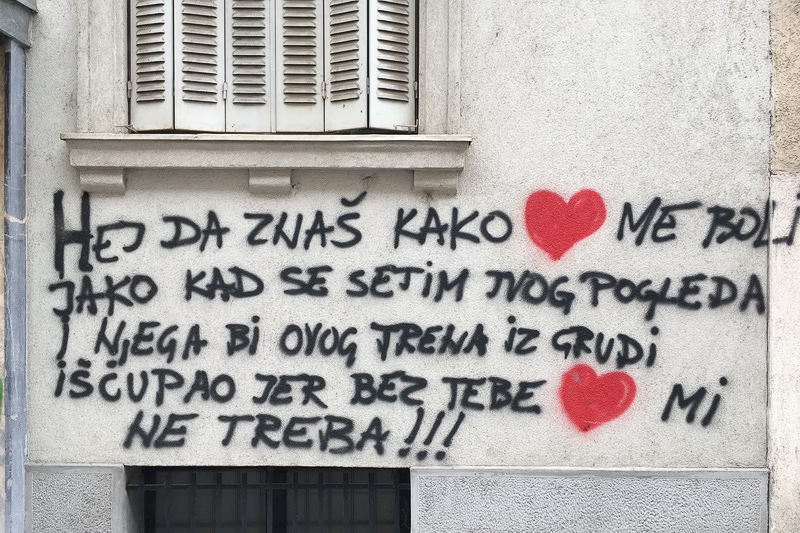 HEJ DA ZNAŠ KAKO ❤ ME BOLI
JAKO KAD SE SETIM TVOG POGLEDA
I NJEGA BI OVOG TRENA IZ GRUDI
IŠČUPAO JER BEZ TEBE ❤ MI
NE TREBA!!!